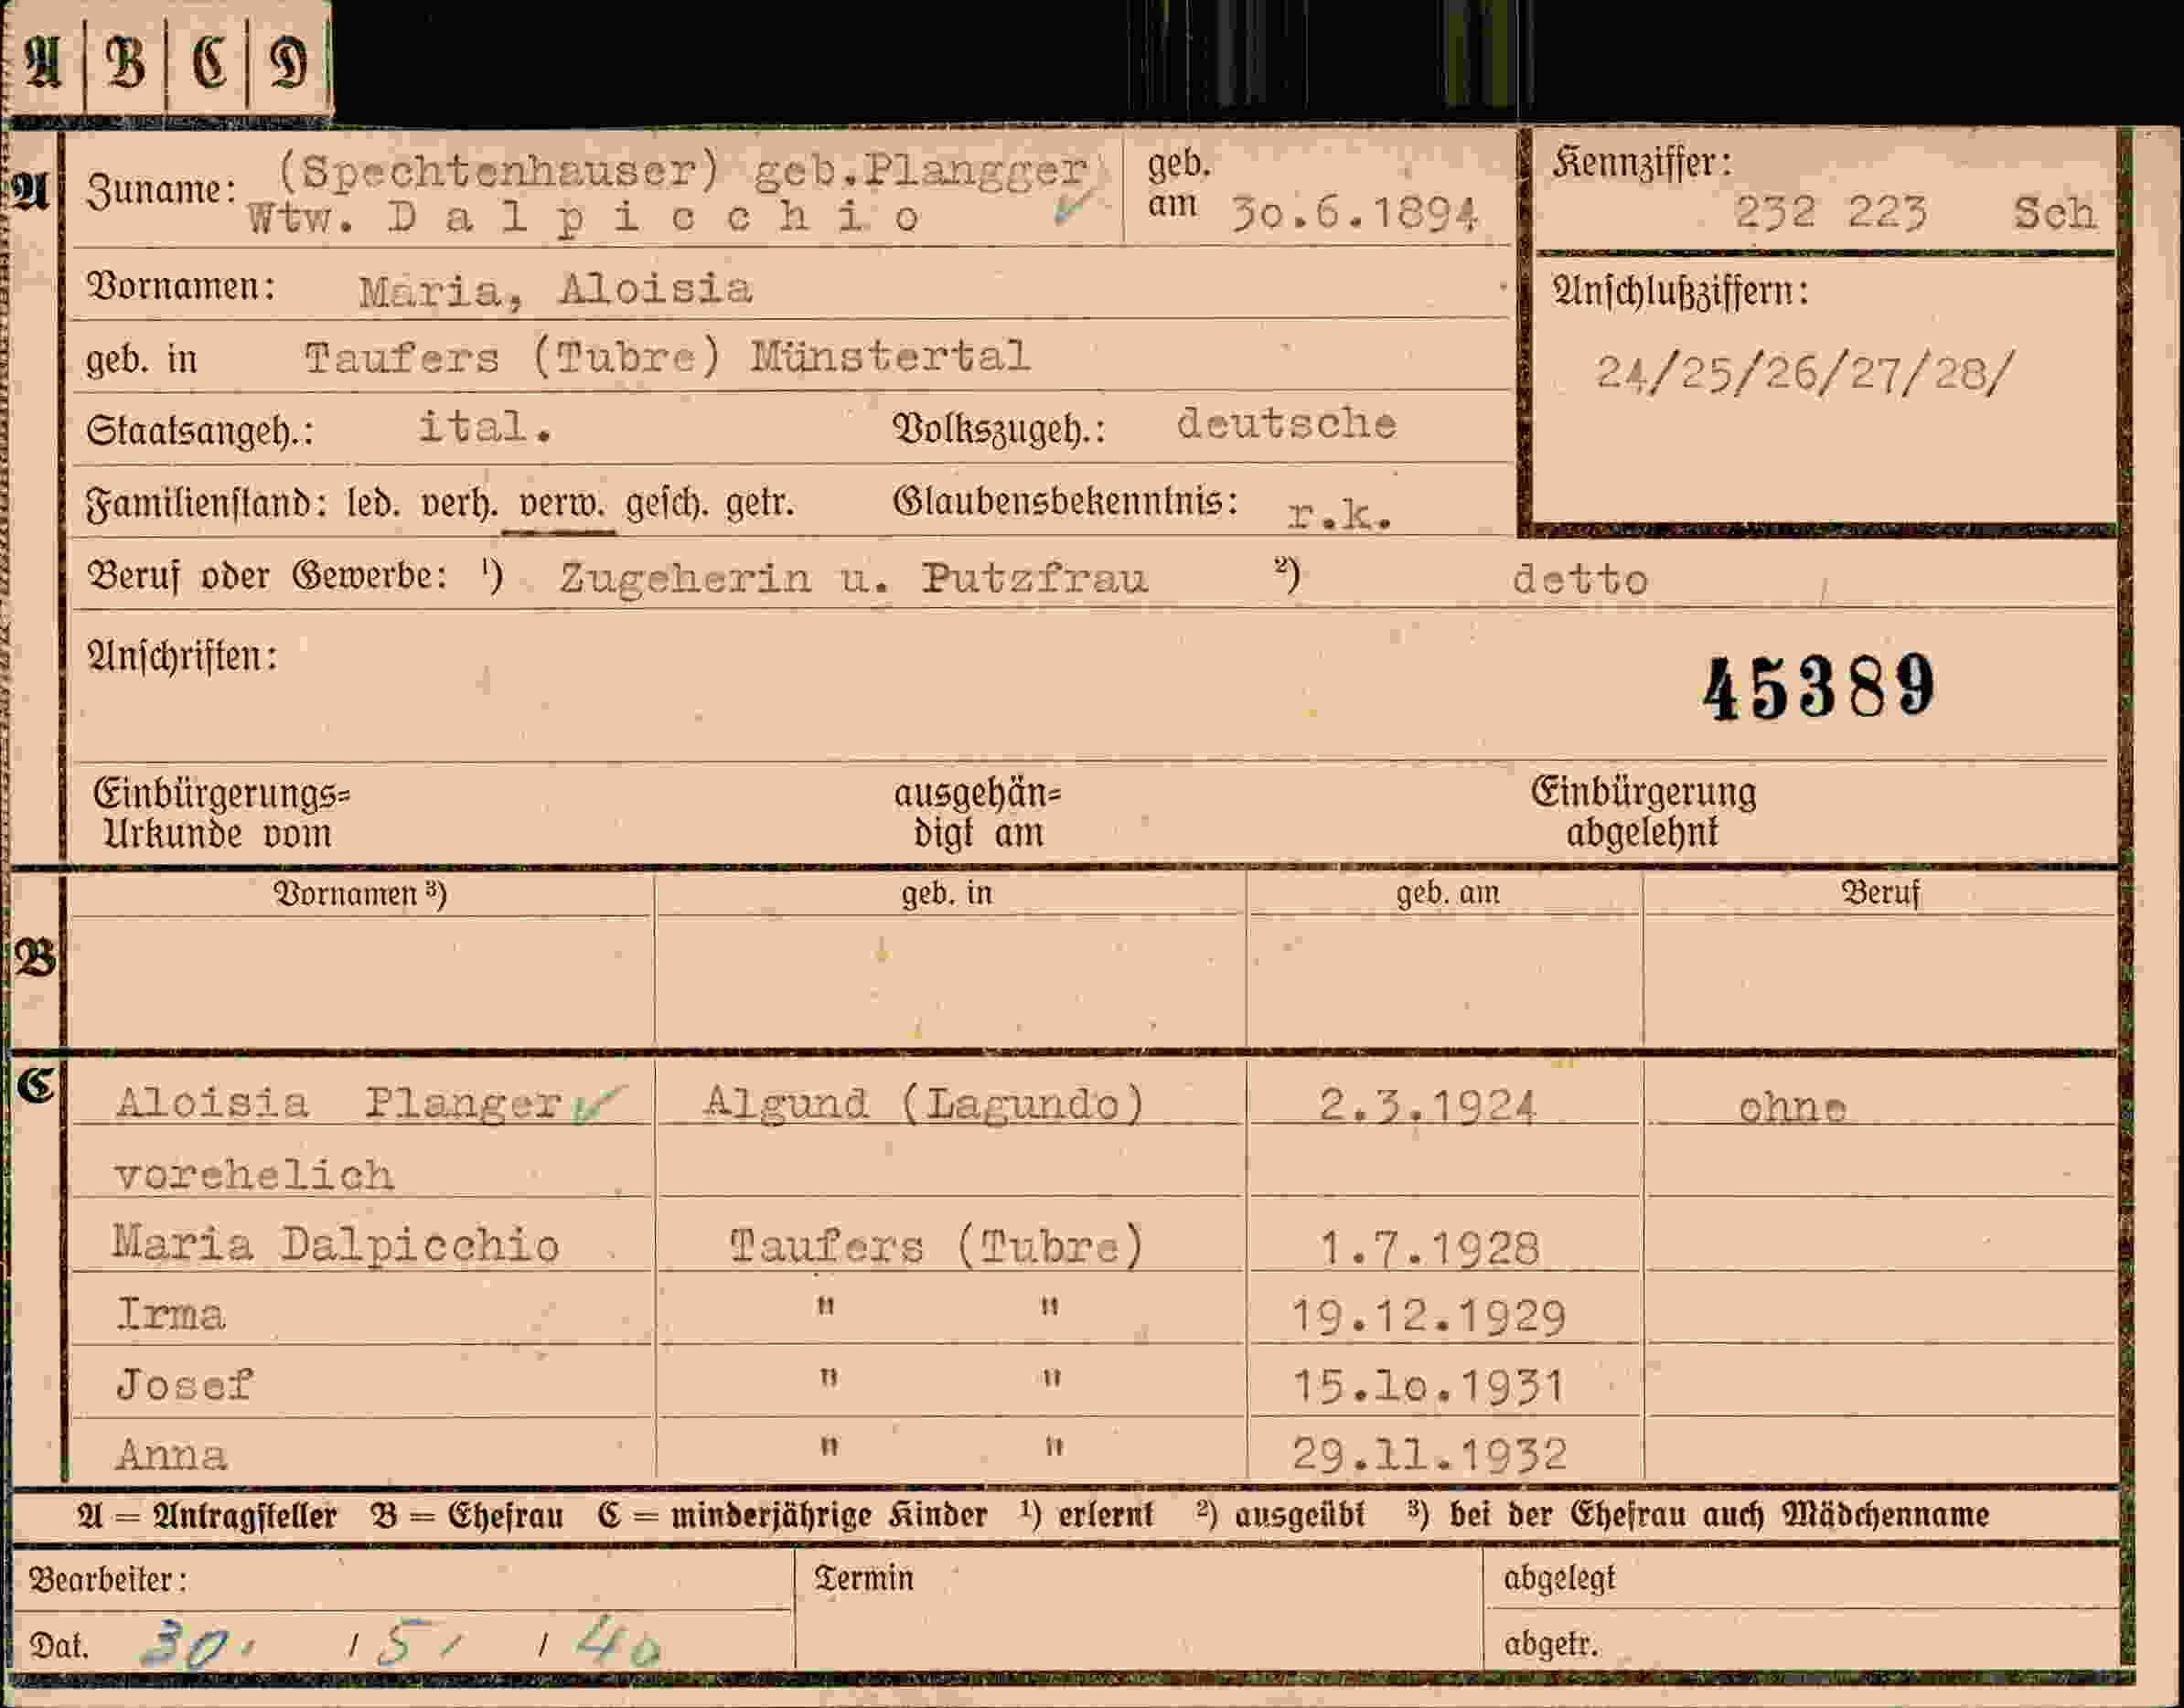 A | B | C | D
A Zuname: (Spechtenhauser) geb.Plangger
Wtw. D a l p i c c h i o
geb. am 30.6.1894
Kennziffer:
232 223 Sch
Vornamen: Maria, Aloisia
Anschlußziffern:
24/25/26/27/28/
geb. in Taufers (Tubre) Münstertal
Staatsangeh.: ital. Volkszugeh.: deutsche
Familienstand: led. verh. verw. gesch. getr. Glaubensbekenntnis: r.k.
Beruf oder Gewerbe: ¹) Zugeherin u. Putzfrau ²) detto
Anschriften:
45389
Einbürgerungs=
Urkunde vom
ausgehän=
digt am
Einbürgerung
abgelehnt
Vornamen ³) geb. in geb. am Beruf
B
C Aloisia Planger Algund (Lagundo) 2.3.1924 ohne
vorehelich
Maria Dalpicchio Taufers (Tubre) 1.7.1928
Irma " " 19.12.1929
Josef " " 15.lo.1931
Anna " " 29.11.1932
A = Antragsteller B = Ehefrau C = minderjährige Kinder ¹) erlernt ²) ausgeübt ³) bei der Ehefrau auch Mädchenname
Bearbeiter: Termin abgelegt
Dat. 30. / 5 / / 40 abgetr.